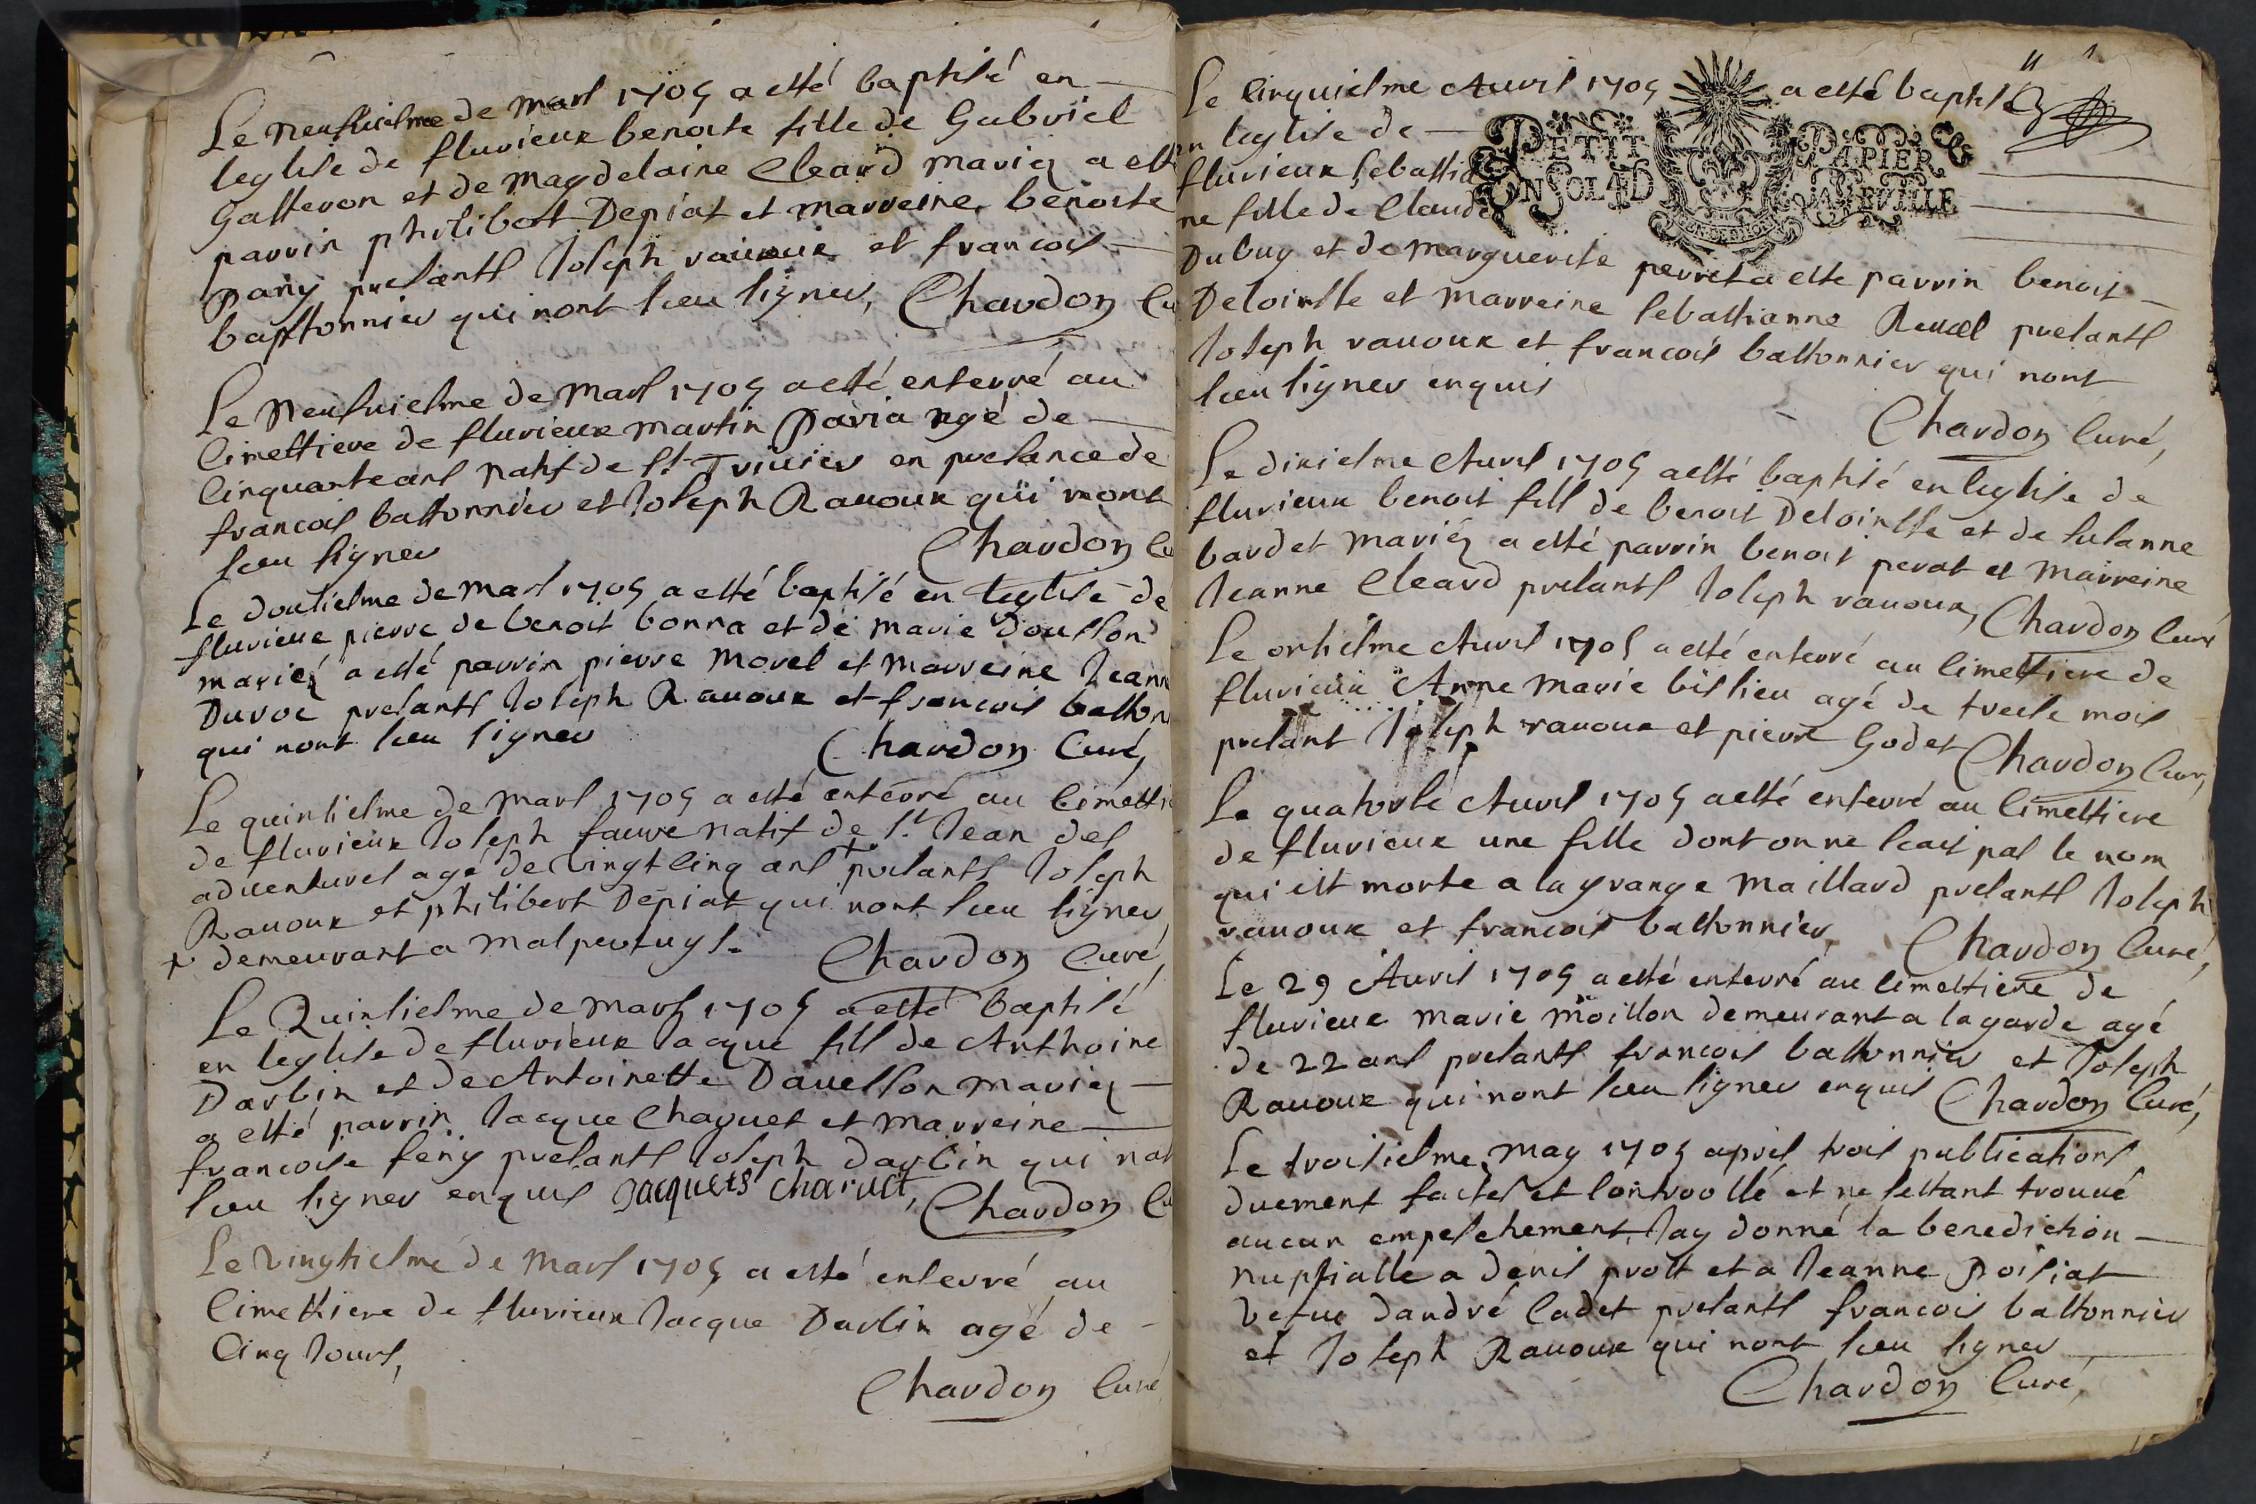 Le neufuielme de mars 1705 a esté baptisé en
leglise de fluvieux benoite fille de Gabriel
Galteron et de magdelaine Cleard mariez a esté
parrin philibert Depiat et marreine benoite
Pany presants Joseph ravoux et francois
bastonnier qui nont sceu signer, Chardon Cu
Le Neufuiesme de Mars 1705 a esté enterré au
Cimettiere de fluvieux martin Paria agé de
Cinquante ans natif de St. Trivier en presance de
francois bastonnier et Joseph Ravoux qui nont
sceu signer Chardon Cu
Le douziesme de mars 1705 a esté baptisé en leglise de
fluvieux pierre de benoit bonna et de marie Dousson
mariez a esté parrin pierre morel et marreine Jeanne
Duroc presants Joseph Ravoux et francois baston
qui nont sceu signer Chardon Curé,
Le quinziesme de mars 1705 a esté enterré au Cimetti
de fluvieux Joseph faure natif de St. Jean des
adventures agé de vingt cinq ans + presants Joseph
Ravoux et philibert Depiat qui nont sceu signer
+ demeurant a malpertuys. Chardon Curé,
Le Quinziesme de mars 1705 a esté baptisé
en leglise de fluvieux Jacque fils de Anthoine
Darbin et de Antoinette Davesson mariez
a esté parrin Jacque Chaquet et marreine
francoise feny presants Joseph darbin qui nat
sceu signer enquis Jacques Charuet, Chardon Cu
Le vingtiesme de Mars 1705 a esté enterré au
Cimettiere de fluvieux Jacque Darbin agé de
Cinq Jours,
Chardon Curé
11
Le Cinquiesme Avril 1705 a esté baptisé
en leglise de
fluvieux sebastia
ne fille de Claude
PETIT PAPIER
ON SOL 4 D LA FEVILLE
Dubuy et de marguerite perret a esté parrin benoit
Deloinste et marreine sebastianne Revel presants
Joseph ravoux et francois bastonnier qui nont
sceu signer enquis
Chardon Curé,
Le dixiesme Avril 1705 a esté baptisé en leglise de
fluvieux benoit fils de benoit Deloinste et de susanne
bardet mariez a esté parrin benoit perat et marreine
Jeanne Cleard presants Joseph ravoux, Chardon Curé
Le onziesme Avril 1705 a esté enterré au Cimettiere de
fluvieux Anne Marie bislieu agé de treise mois
presant Joseph ravoux et pierre Godet Chardon Cur,
Le quatorse Avril 1705 a esté enterré au Cimettiere
de fluvieux une fille dont on ne scais pas le nom
qui est morte a la grange maillard presants Joseph
ravoux et francois bastonnier Chardon Curé,
Le 29 Avril 1705 a esté enterré au Cimettiere de
fluvieux marie moillon demeurant a lagarde agé
de 22 ans presants francois bastonnier et Joseph
Ravoux qui nont sceu signer enquis Chardon Curé,
Le troisiesme May 1705 apres trois publications
duement faites et Controollé et ne sestant trouué
aucun empeschement Jay donné la benediction
nuptialle a denis prost et a Jeanne Poisiat
vefue dandré Cadet presants francois bastonnier
et Joseph Ravoux qui nont sceu signer
Chardon Curé,